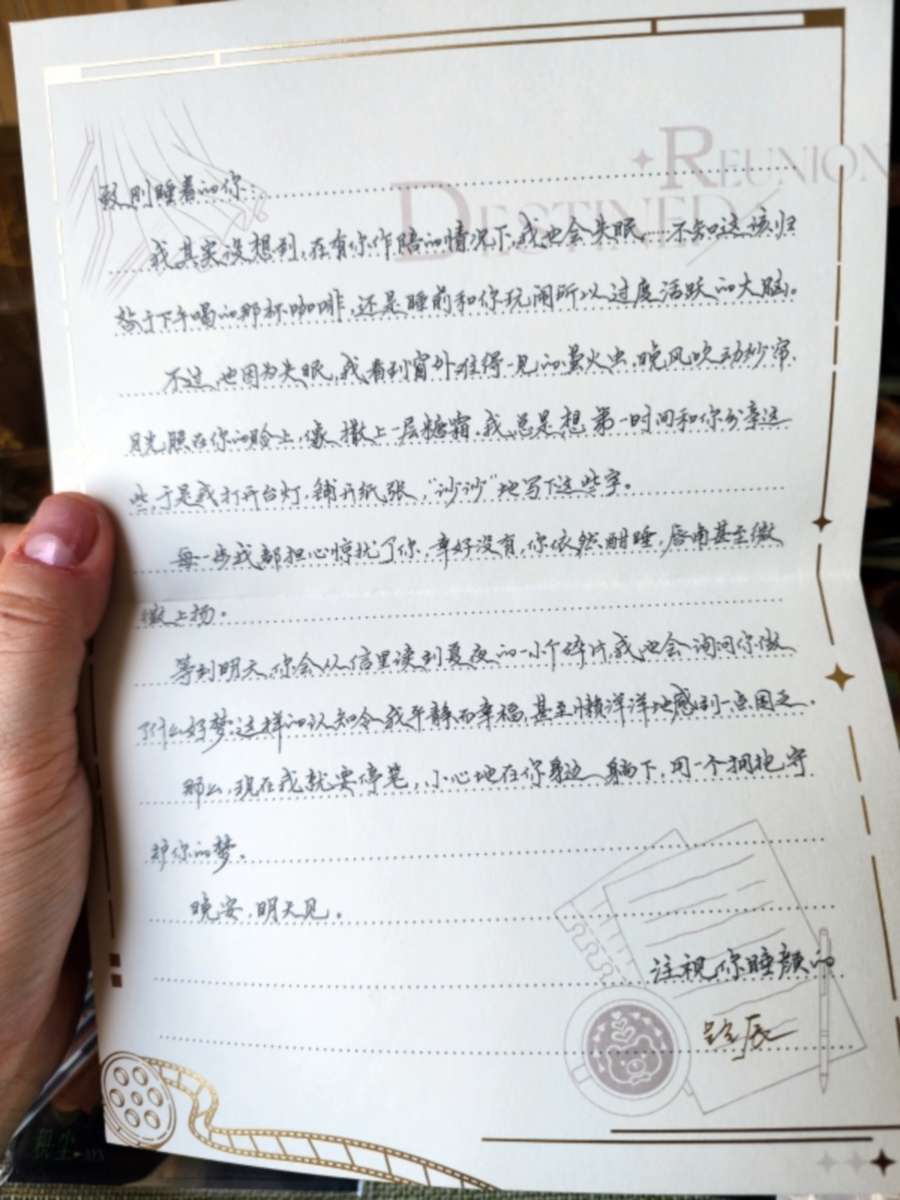 REUNION
DESTINED
致刚睡着的你：
我其实没想到,在有你作陪的情况下,我也会失眠……不知这该归
於于下午喝的那杯咖啡,还是睡前和你玩闹所以过度活跃的大脑。
不过,也因为失眠,我看到窗外难得一见的萤火虫,晚风吹动纱帘,
月光照在你的脸上,像撒上一层糖霜.我总是想第一时间和你分享这
些,于是我打开台灯,铺开纸张,“沙沙”地写下这些字。
每一步我都担心惊扰了你.幸好没有,你依然酣睡,唇角甚至微
微上扬。
等到明天,你会从信里读到夏夜的一小个碎片,我也会询问你做
了什么好梦.这样的认知令我平静而幸福,甚至懒洋洋地感到一点困乏。
那么,现在我就要停笔,小心地在你身边躺下,用一个拥抱守
护你的梦。
晚安,明天见。
注视你睡颜的